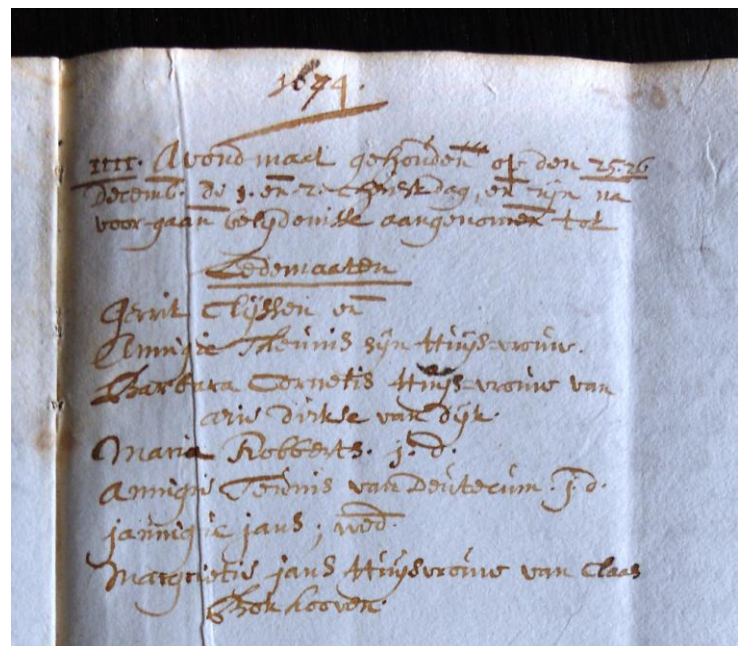 1674.
IIII. Avondmaal gehouden op den 25.26
Decemb. de 1. en 2e Christdag, en zijn na
voor-gaan belydenisse aangenomen tot
Ledemaaten
Gerrit Clyssen en
Annigie Theunis syn Huys-vrouw.
Barbara Cornelis Huys-vrouw van
arie dirkse van dyk.
Maria Robberts. j. d.
Annigie Teunis van Deutecum. j. d.
jannigie jans; wed.
Margrietie jans Huysvrouw van Claas
Bokhooven.